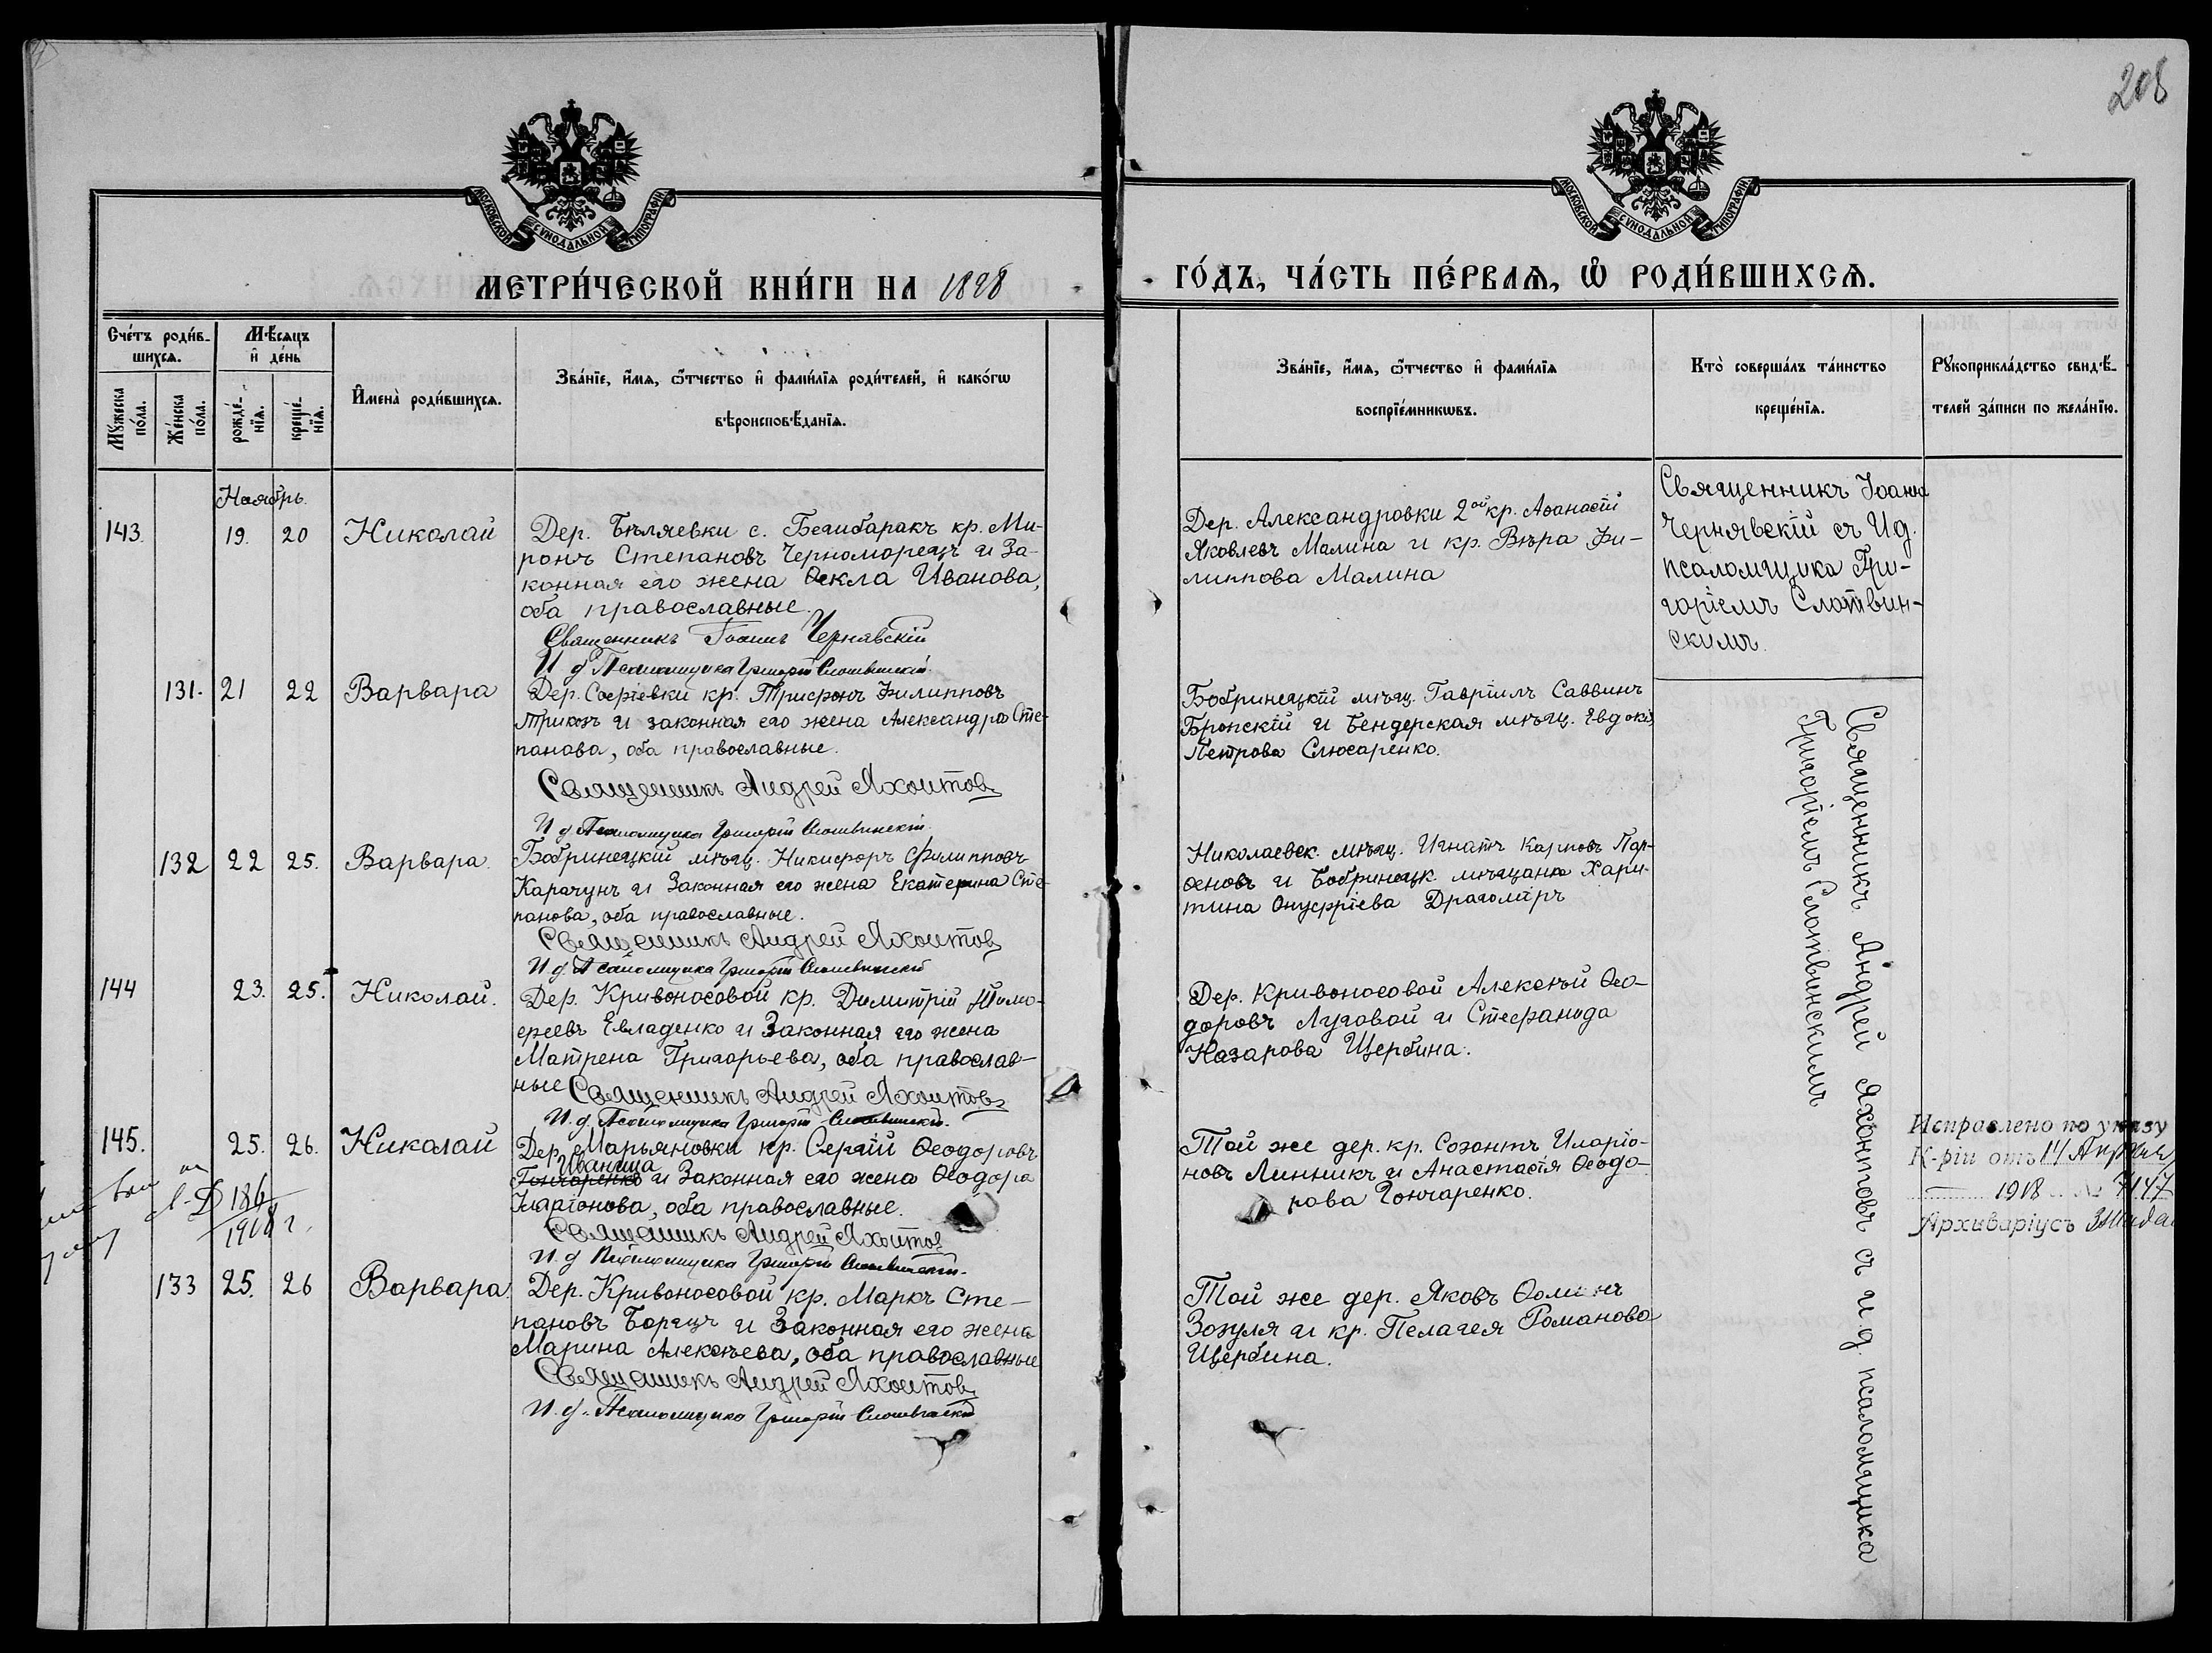 208
МОСКОВСКОЙ СѴНОДАЛЬНОЙ ТИПОГРАФІИ
МОСКОВСКОЙ СѴНОДАЛЬНОЙ ТИПОГРАФІИ
МЕТРИ́ЧЕСКОЙ КНИ́ГИ НА 1898
ГО́ДЪ, ЧА́СТЬ ПЕ́РВАѦ, Ѡ҆ РОДИ́ВШИХСѦ.
Сче́тъ роди́в-
шихсѧ.
Мѣ́сяцъ
и҆ де́нь
Мꙋ́жеска
по́ла.
Же́нска
по́ла.
рожде́-
нїѧ.
креще́-
нїѧ.
И҆мена̀ роди́вшихсѧ.
Зва́нїе, и҆́мѧ, ѻ҆́тчество и҆ фами́лїѧ роди́телей, и҆ како́гѡ
вѣроисповѣ́данїѧ.
Зва́нїе, и҆́мѧ, ѻ҆́тчество и҆ фами́лїѧ
воспрїе́мникѡвъ.
Кто̀ соверша́лъ та́инство
креще́нїѧ.
Рꙋкоприкла́дство свидѣ́-
телей за́писи по жела́нїю.
Ноябрь.
143. 19. 20 Николай
Дер. Бѣляевки с. Бешбаракъ кр. Ми-
ронъ Степановъ Черноморецъ и За-
конная его жена Ѳекла Иванова,
оба православные.
Священникъ Іоаннъ Чернявскій
И д Псаломщика Григорій Слотвинскій
Дер. Александровки 2ой кр. Аѳанасій
Яковлевъ Малина и кр. Вѣра Фи-
липпова Малина
Священникъ Іоаннъ
Чернявскій съ И.д.
псаломщика Гри-
горіемъ Слотвин-
скимъ.
131. 21 22 Варвара
Дер. Софіевки кр. Трифонъ Филипповъ
Трикозъ и законная его жена Александра Сте-
панова, оба православные.
Священникъ Андрей Яхонтовъ
И д Псаломщика Григорій Слотвинскій
Бобринецкій мѣщ. Гавріилъ Саввинъ
Бронскій и Бендерская мѣщ. Евдокія
Петрова Слюсаренко.
Священникъ Андрей Яхонтовъ съ и.д. псаломщика
Григоріемъ Слотвинскимъ
132 22 25. Варвара.
Бобринецкій мѣщ. Никифоръ Филипповъ
Карачунъ и Законная его жена Екатерина Сте-
панова, оба православные.
Священникъ Андрей Яхонтовъ
И.д. Псаломщика Григорій Слотвинскій
Николаевск. мѣщ. Игнатъ Карповъ Пар-
ѳеновъ и Бобринецк. мѣщанка Хари-
тина Онуфріева Драгомиръ
144 23. 25. Николай.
Дер. Кривоносовой кр. Димитрій Тимо-
ѳеевъ Евладенко и Законная его жена
Матрена Григорьева, оба православ-
ные Священникъ Андрей Яхонтовъ
И.д. Псаломщика Григорій Слотвинскій.
Дер. Кривоносовой Алексѣй Ѳео-
доровъ Луговой и Стефанида
Назарова Щербина.
145. 25. 26. Николай
Дер. Марьяновки кр. Сергій Ѳеодоровъ
Иваница
Гончаренко и Законная его жена Ѳеодора
Иларіонова, оба православные.
Священникъ Андрей Яхонтовъ
И. д Псаломщика Григорій Слотвинскій.
Той же дер. кр. Созонтъ Иларіо-
новъ Линникъ и Анастасія Ѳеодо-
рова Гончаренко.
Исправлено по указу
К-ріи отъ 14 Апрѣля
1918 № 7147
Архиваріусъ
186
1918 г.
133 25. 26 Варвара.
Дер. Кривоносовой кр. Маркъ Сте-
пановъ Борецъ и Законная его жена
Марина Алексѣева, оба православные
Священникъ Андрей Яхонтовъ
И.д. Псаломщика Григорій Слотвинскій
Той же дер. Яковъ Ѳоминъ
Зозуля и кр. Пелагея Романова
Щербина.